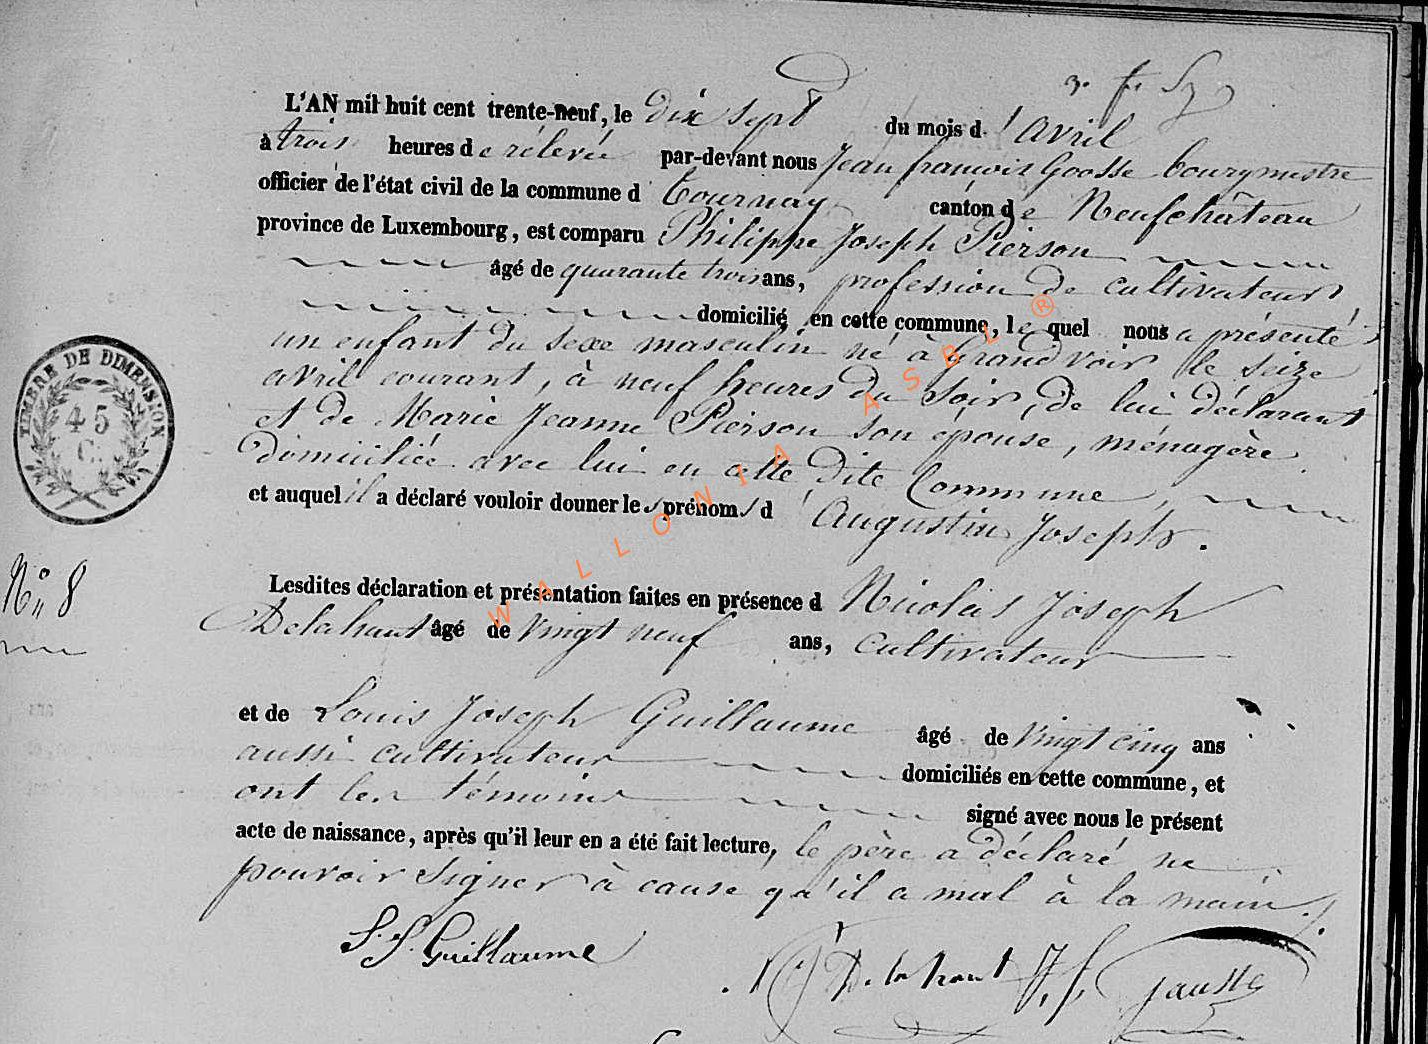 3. f. Sz
L'AN mil huit cent trente-neuf, le dix sept du mois d'avril
à trois heures de rélevée par-devant nous Jean françois Goosse bourgmestre
officier de l'état civil de la commune d Tournay canton de Neufchâteau
province de Luxembourg, est comparu Philippe Joseph Pierson
âgé de quarante trois ans, profession de cultivateur
domicilié en cette commune, lequel nous a présenté
un enfant du sexe masculin né à Grandvoir le seize
avril courant, à neuf heures du soir, de lui déclarant
et de Marie Jeanne Pierson son épouse, ménagère
domiciliée avec lui en cette dite Commune,
et auquel il a déclaré vouloir donner les prénoms d'Augustin Joseph.
TIMBRE DE DIMENSION
45
C.
N° 8
Lesdites déclaration et présentation faites en présence d Nicolas Joseph
Delahaut âgé de vingt neuf ans, cultivateur
et de Louis Joseph Guillaume âgé de vingt cinq ans
aussi cultivateur domiciliés en cette commune, et
ont les témoins signé avec nous le présent
acte de naissance, après qu'il leur en a été fait lecture, le père a déclaré ne
pouvoir signer à cause qu'il a mal à la main.
Guillaume
Delahaut J. f. Gausse
WALLONIA ASBL ®